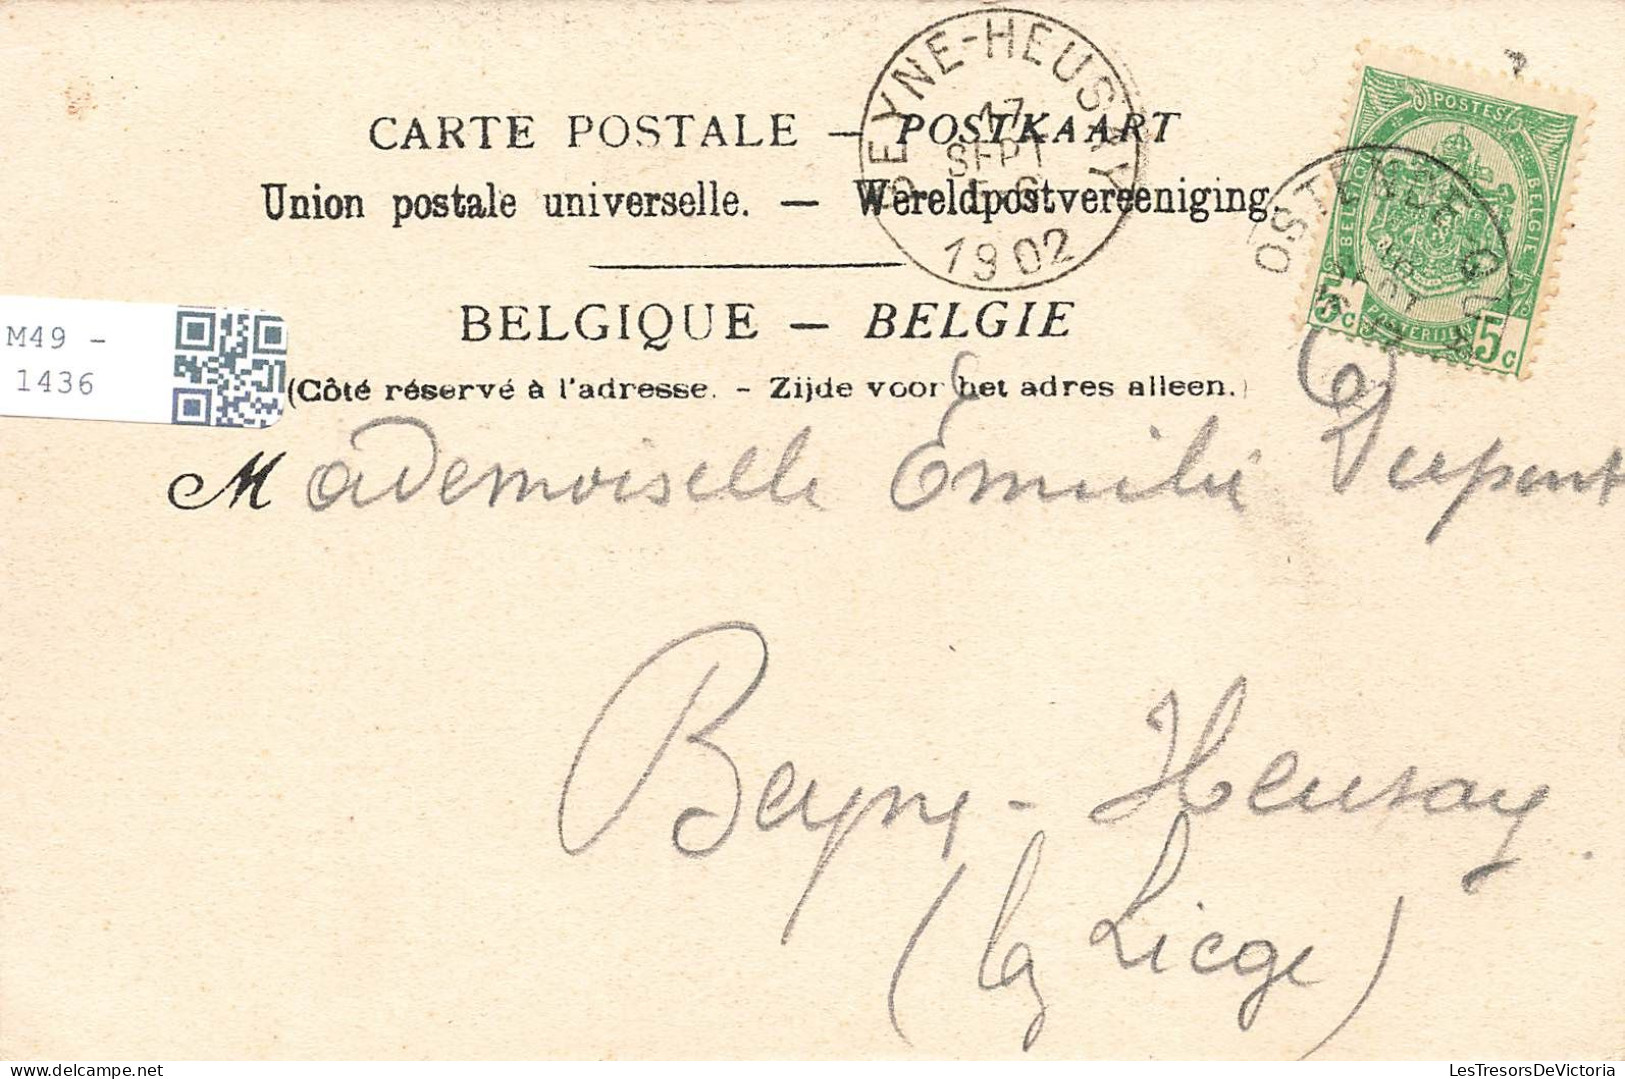 BEYNE-HEUSAY
17
SEPT
1902
POSTES
BELGIQUE
BELGIE
POSTERIJEN
5c
5c
OSTENDE
CARTE POSTALE — POSTKAART
Union postale universelle. — Wereldpostvereeniging.
BELGIQUE — BELGIE
M49 -
1436
(Côté réservé à l'adresse. - Zijde voor het adres alleen.)
Mademoiselle Emilie
Beyne-Heusay.
(lez Liège)
LesTresorsDeVictoria